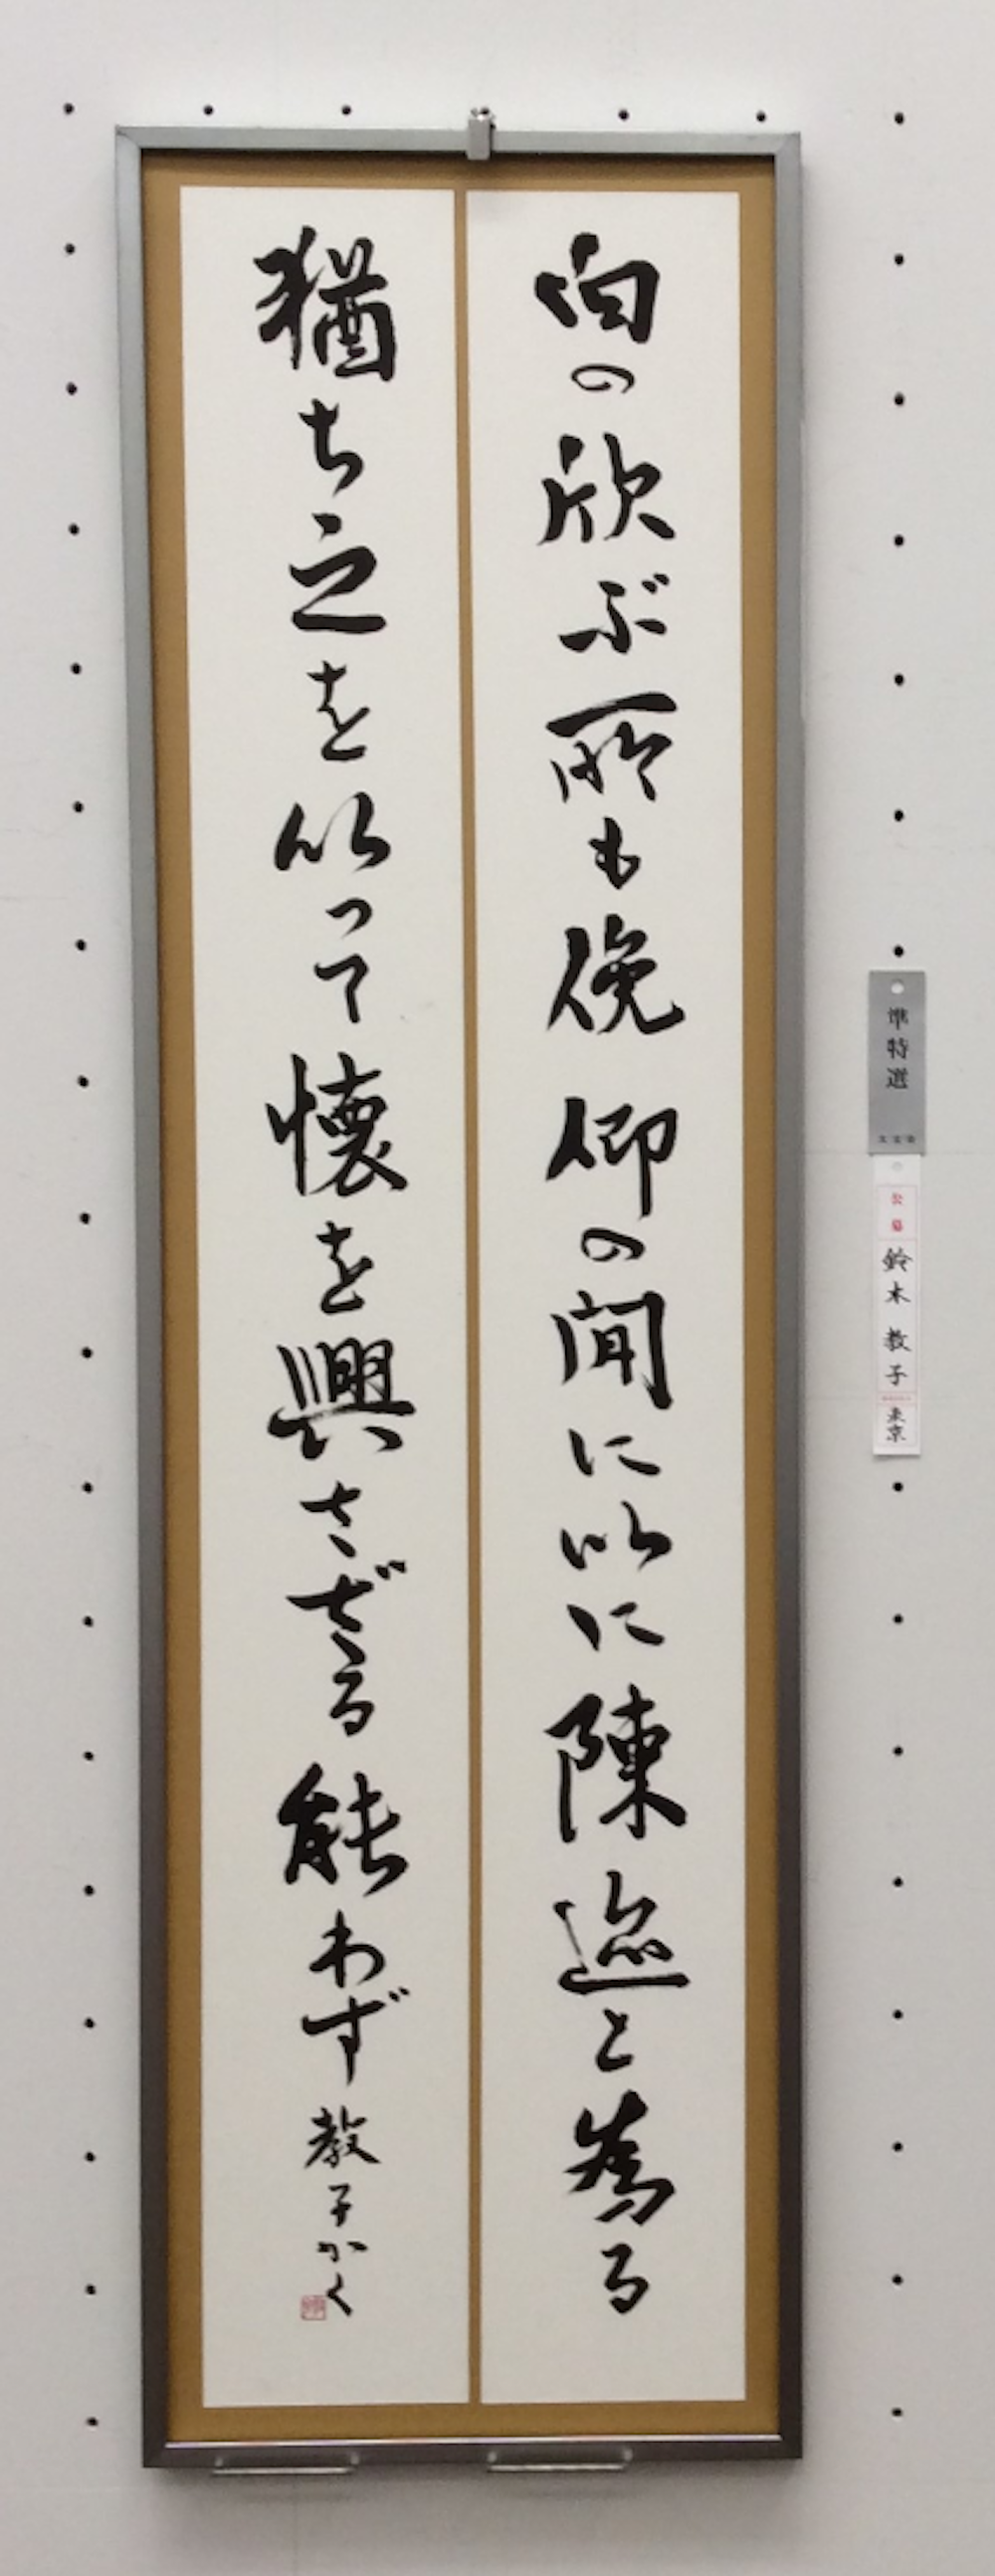 向の欣ぶ所も俛仰の間に以に陳迹と為る
猶ち之を以って懐を興さざる能わず
教子かく
準特選
公募
鈴木教子
東京